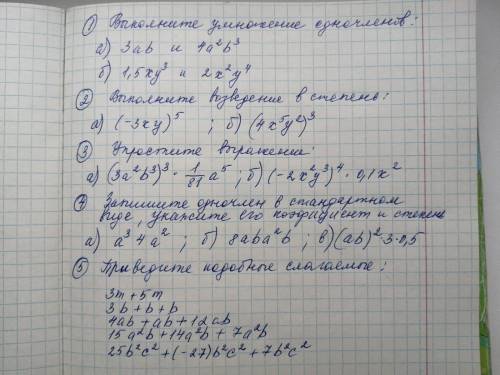 ① Выполните умножение одночленов:
а) 3ab и 4a²b³
б) 1,5xy³ и 2x²y⁴
② Выполните возведение в степень:
а) (-3xy)⁵ ; б) (4x⁵y²)³
③ Упростите выражение:
а) (3a²b³)³ · 1/81 a⁵ ; б) (-2x²y³)⁴ · 0,1x²
④ Запишите одночлен в стандартном
виде, укажите его коэфициент и степень
а) a³4a² ; б) 8aba²b ; в) (ab)²·3·0,5
⑤ Приведите подобные слагаемые:
3m + 5m
3b + b + b
4ab + ab + 12ab
15a²b + 14a²b + 7a²b
25b²c² + (-27)b²c² + 7b²c²